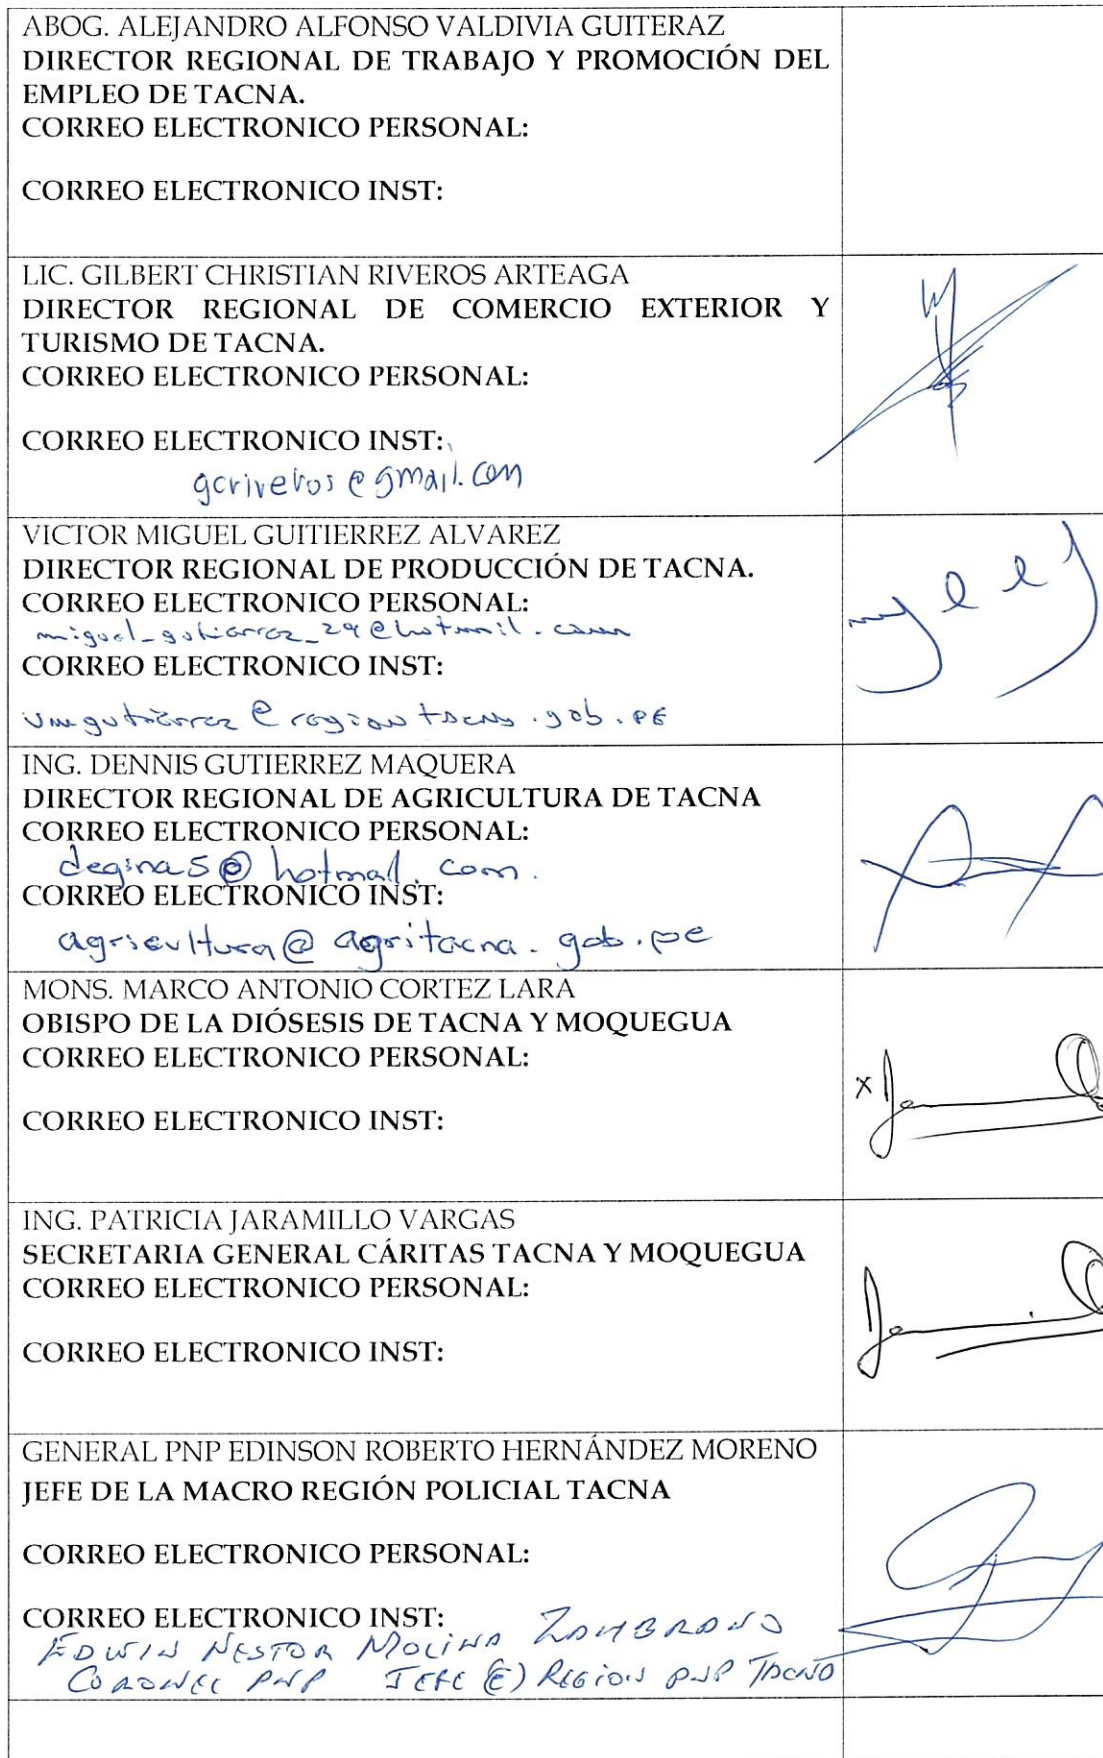 ABOG. ALEJANDRO ALFONSO VALDIVIA GUITERAZ
DIRECTOR REGIONAL DE TRABAJO Y PROMOCIÓN DEL
EMPLEO DE TACNA.
CORREO ELECTRONICO PERSONAL:
CORREO ELECTRONICO INST:
LIC. GILBERT CHRISTIAN RIVEROS ARTEAGA
DIRECTOR REGIONAL DE COMERCIO EXTERIOR Y
TURISMO DE TACNA.
CORREO ELECTRONICO PERSONAL:
CORREO ELECTRONICO INST:
gcriveros@gmail.com
VICTOR MIGUEL GUITIERREZ ALVAREZ
DIRECTOR REGIONAL DE PRODUCCIÓN DE TACNA.
CORREO ELECTRONICO PERSONAL:
miguel_gutierrez_29@hotmail.com
CORREO ELECTRONICO INST:
vmgutierrez@regiontacna.gob.pe
ING. DENNIS GUTIERREZ MAQUERA
DIRECTOR REGIONAL DE AGRICULTURA DE TACNA
CORREO ELECTRONICO PERSONAL:
degima5@hotmail.com.
CORREO ELECTRONICO INST:
agricultura@agritacna.gob.pe
MONS. MARCO ANTONIO CORTEZ LARA
OBISPO DE LA DIÓSESIS DE TACNA Y MOQUEGUA
CORREO ELECTRONICO PERSONAL:
CORREO ELECTRONICO INST:
ING. PATRICIA JARAMILLO VARGAS
SECRETARIA GENERAL CÁRITAS TACNA Y MOQUEGUA
CORREO ELECTRONICO PERSONAL:
CORREO ELECTRONICO INST:
GENERAL PNP EDINSON ROBERTO HERNÁNDEZ MORENO
JEFE DE LA MACRO REGIÓN POLICIAL TACNA
CORREO ELECTRONICO PERSONAL:
CORREO ELECTRONICO INST:
EDWIN NESTOR MOLINA ZAMBRANO
CORONEL PNP JEFE (E) REGION PNP TACNA